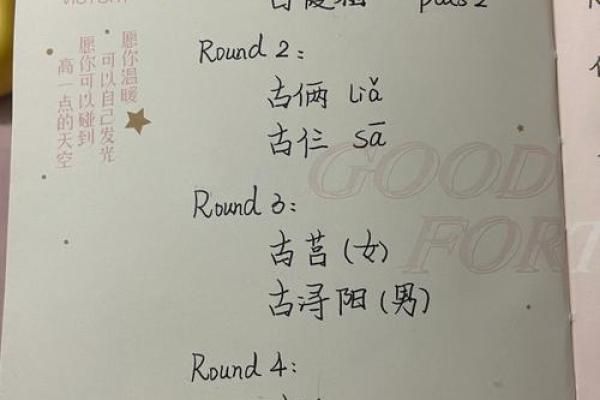 Round 2:
古俩 Liǎ
古仨 Sā
Round 3:
古莒(女)
古浔阳(男)
Round 4:
愿你温暖
可以自己发光
愿你可以碰到
高一点的天空
GOOD
FORT